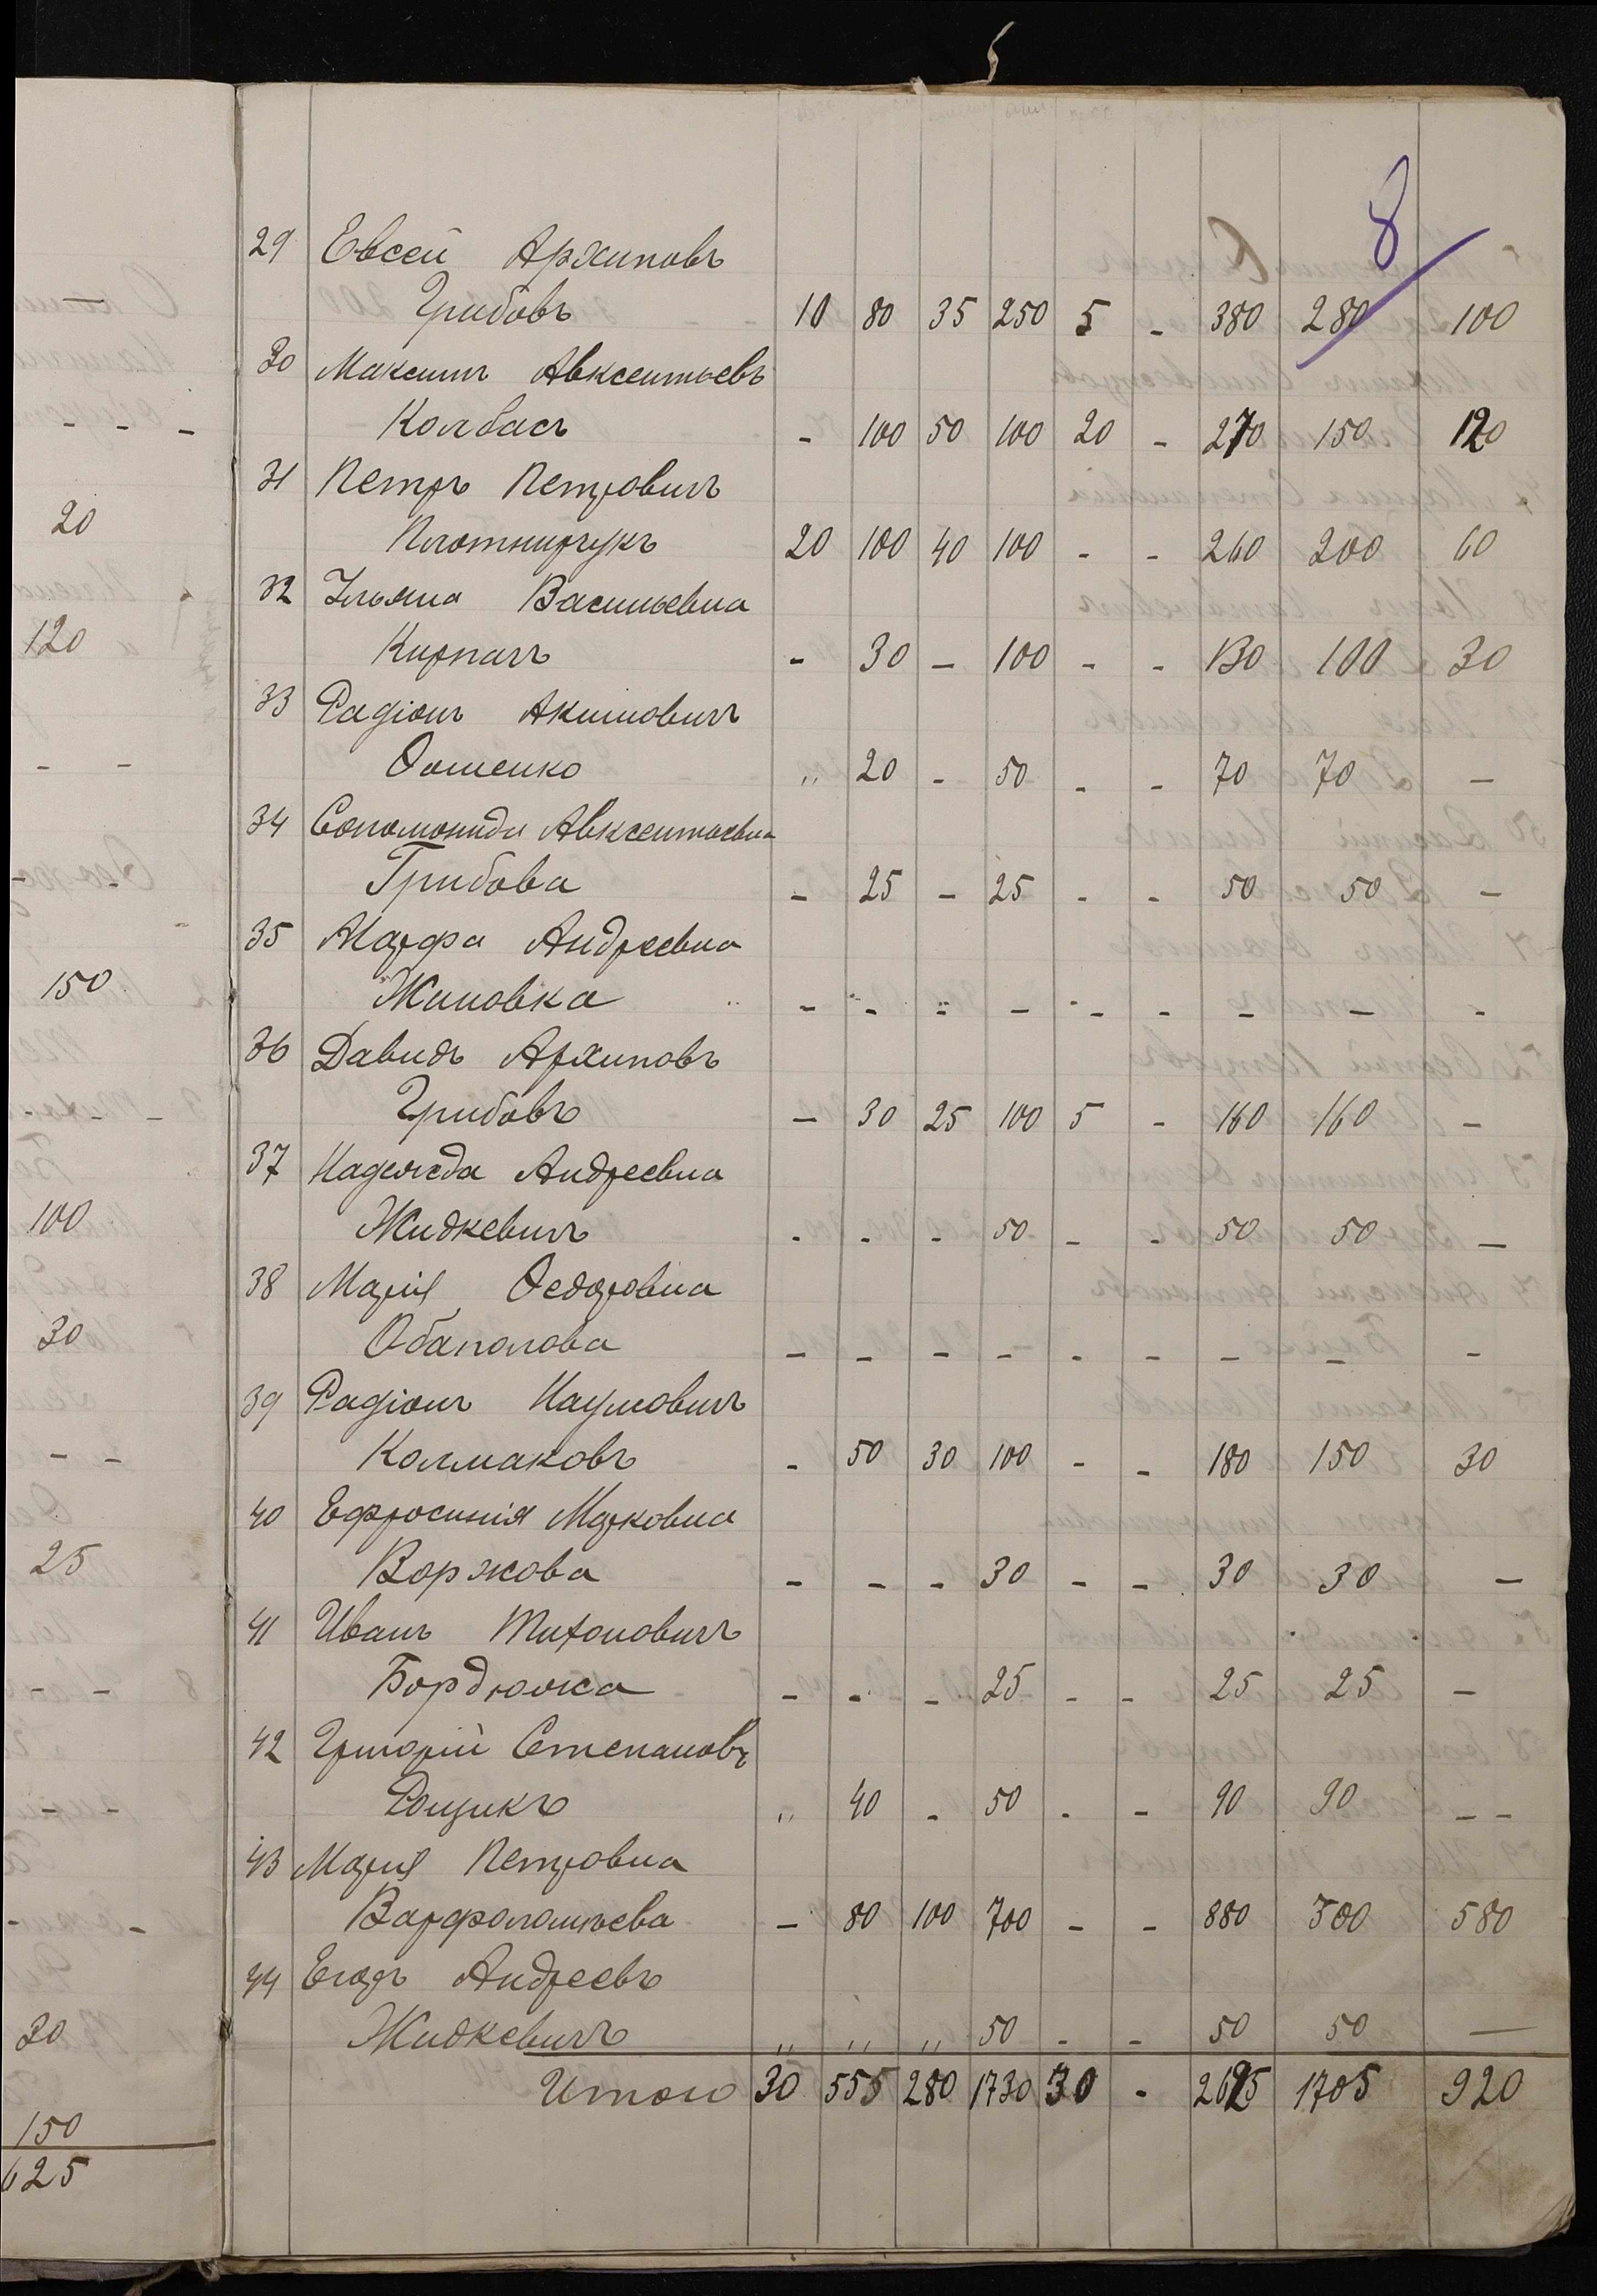 8
29 Евсей Архиповъ
Грибовъ 10 80 35 250 5 - 380 280 100
30 Максимъ Авксентьевъ
Колбасъ - 100 50 100 20 - 270 150 120
31 Петръ Петровичъ
20
Плотницукъ 20 100 40 100 - - 260 200 60
32 Ульяна Васильевна
120
Кирпачъ - 30 - 100 - - 130 100 30
33 Радіонъ Акимовичъ
Оошенко „ 20 - 50 - - 70 70 -
34 Соломонида Авксентьевна
Грибова - 25 - 25 - - 50 50 -
35 Марфа Андреевна
150
Жиновка - - - - - - - - -
36 Давидъ Архиповъ
Грибовъ - 30 25 100 5 - 160 160 -
37 Надежда Андреевна
100
Жидкевичъ - - - 50 - - 50 50 -
38 Марія Ѳедоровна
30
Обаполова - - - - - - - - -
39 Радіонъ Наумовичъ
Колмаковъ - 50 30 100 - - 180 150 30
40 Ефросинія Марковна
25
Воржова - - - 30 - - 30 30 -
41 Иванъ Тихоновичъ
Бордюжа - - - 25 - - 25 25 -
42 Григорій Степановъ
Рощикъ „ 40 - 50 - - 90 90 - -
43 Марія Петровна
Варфоломѣева - 80 100 700 - - 880 300 580
44 Егоръ Андреевъ
30
Жидкевичъ „ „ „ 50 - - 50 50 -
Итого 30 555 280 1730 30 - 2625 1705 920
150
625